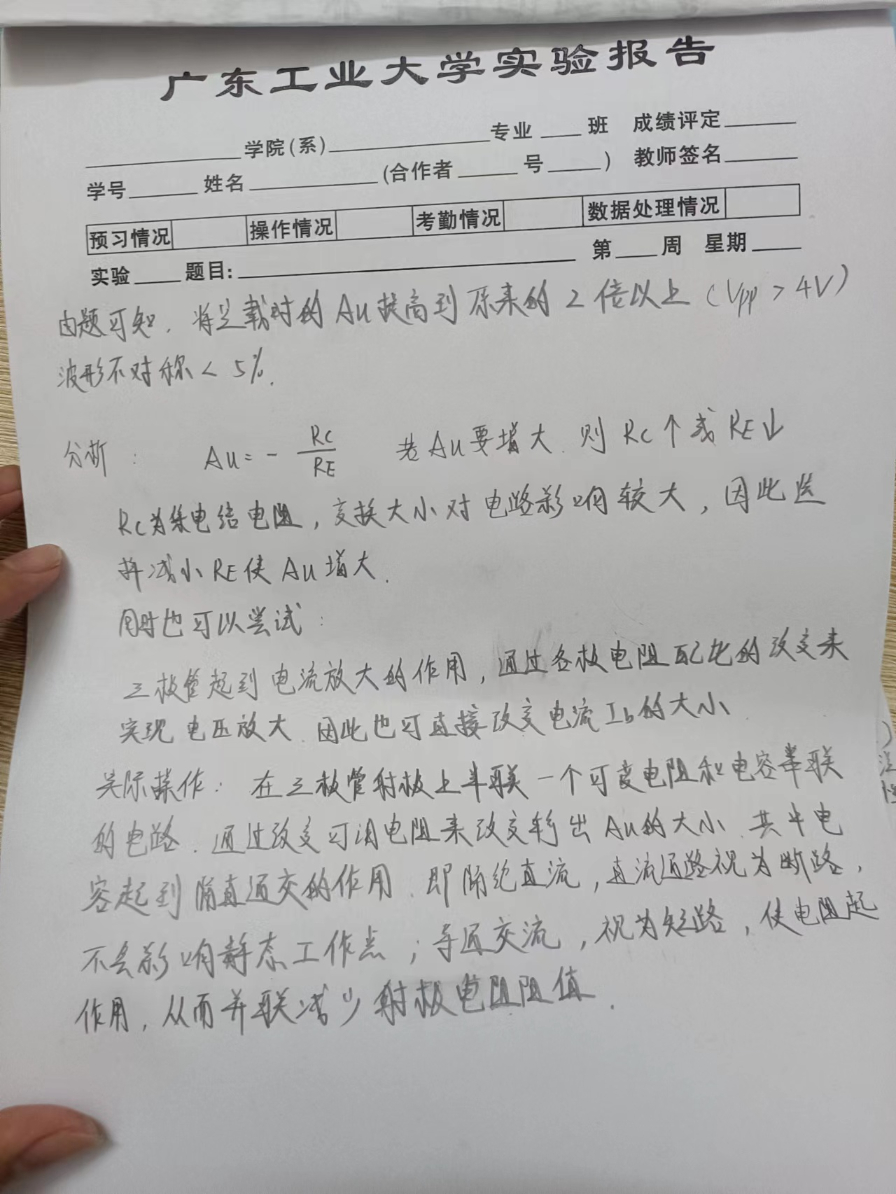 广东工业大学实验报告
学院(系) 专业 班 成绩评定
学号 姓名 (合作者 号 ) 教师签名
预习情况 操作情况 考勤情况 数据处理情况
实验 题目: 第 周 星期
由题可知,将空载时的Au提高到原来的2倍以上(Vpp>4V)
波形不对称<5%.
分析: Au=-RC/RE 若Au要增大.则RC↑或RE↓
RC为集电结电阻,变换大小对电路影响较大,因此选
择减小RE使Au增大.
同时也可以尝试:
三极管起到电流放大的作用,通过各极电阻配比的改变来
实现电压放大.因此也可直接改变电流Ib的大小
实际操作:在三极管射极上并联一个可变电阻和电容串联
的电路.通过改变可调电阻来改变输出Au的大小.其中电
容起到隔直通交的作用.即隔绝直流,直流通路视为断路,
不会影响静态工作点;导通交流,视为短路,使电阻起
作用,从而并联减少射极电阻阻值.